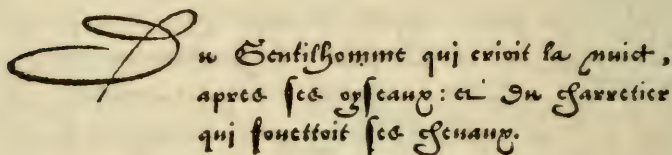 Du Gentilhomme qui crioit la nuict,
apres ses oyseaux: et du charretier
qui fouettoit ses cheuaux.